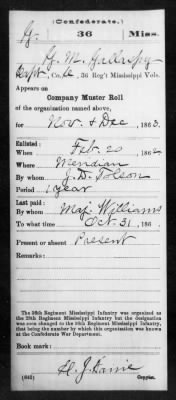 (Confederate.)
G. 36 Miss.
G. M. Gallaspy
Capt, Co. G, 36 Reg't Mississippi Vols.
Appears on
Company Muster Roll
of the organization named above,
for Nov. & Dec, 1863.
Enlisted:
When Feb. 20, 1862.
Where Meridian
By whom J. D. Toleon
Period 1 year
Last paid:
By whom Maj. Williams
To what time Oct. 31, 186 .
Present or absent Present
Remarks:
The 36th Regiment Mississippi Infantry was organized as
the 28th Regiment Mississippi Infantry but the designation
was soon changed to the 36th Regiment Mississippi Infantry,
that being the number by which this organization was known
at the Confederate War Department.
Book mark:
(642) Copyist.